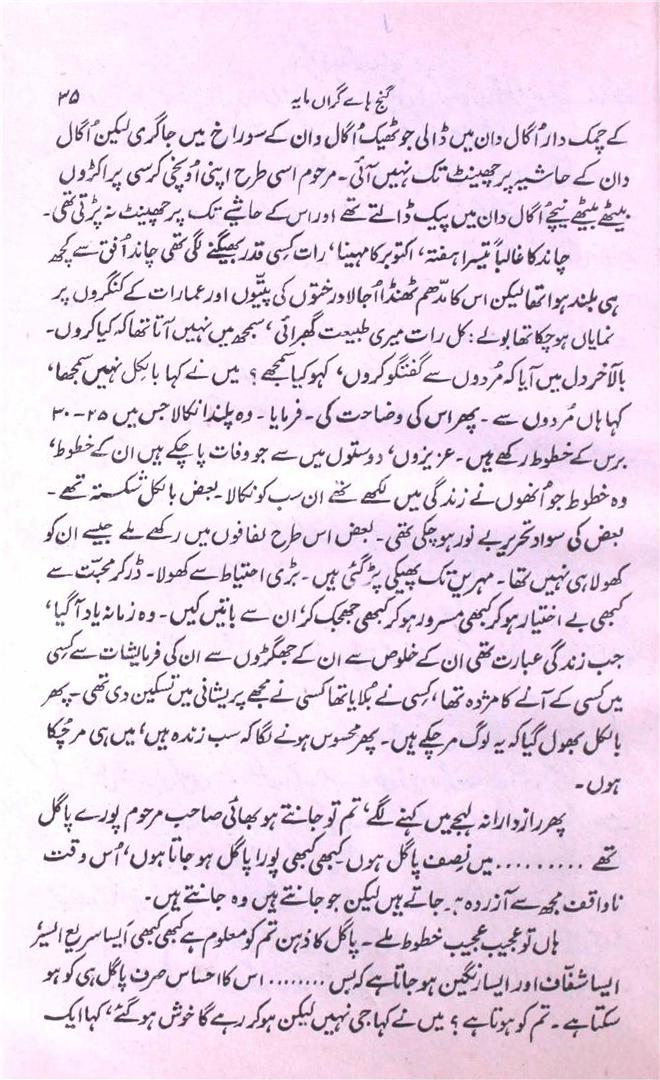 گنج ہاے گراں مایہ ۳۵
کے چمک دار اُگال دان میں ڈالی جو ٹھیک اُگال دان کے سوراخ میں جا گری لیکن اُگال
دان کے حاشیہ پر چھینٹ تک نہیں آئی۔ مرحوم اسی طرح اپنی اُونچی کرسی پر اکڑوں
بیٹھے بیٹھے نیچے اُگال دان میں پیک ڈالتے تھے اور اس کے حاشیے تک پر چھینٹ نہ پڑتی تھی۔
چاند کا غالباً تیسرا ہفتہ، اکتوبر کا مہینا، رات کسی قدر بھیگنے لگی تھی چاند اُفق سے کچھ
ہی بلند ہوا تھا لیکن اس کا مدّھم ٹھنڈا اُجالا درختوں کی پتیّوں اور عمارات کے کنگروں پر
نمایاں ہو چکا تھا بولے: کل رات میری طبیعت گھبرائی، سمجھ میں نہیں آتا تھا کہ کیا کروں۔
بالآخر دل میں آیا کہ مُردوں سے گفتگو کروں، کہو کیا سمجھے؟ میں نے کہا بالکل نہیں سمجھا،
کہا ہاں مُردوں سے۔ پھر اس کی وضاحت کی۔ فرمایا۔ وہ پلندا نکالا جس میں ۲۵-۳۰
برس کے خطوط رکھے ہیں۔ عزیزوں، دوستوں میں سے جو وفات پا چکے ہیں ان کے خطوط،
وہ خطوط جو اُنھوں نے زندگی میں لکھے تھے ان سب کو نکالا۔ بعض بالکل شکستہ تھے۔
بعض کی سواد تحریر بے نور ہو چکی تھی۔ بعض اس طرح لفافوں میں رکھے ملے جیسے ان کو
کھولا ہی نہیں تھا۔ مہریں تک پھیکی پڑ گئی ہیں۔ بڑی احتیاط سے کھولا۔ ڈر کر محبّت سے
کبھی بے اختیار ہو کر کبھی مسرور ہو کر کبھی جھجک کر ان سے باتیں کیں۔ وہ زمانہ یاد آ گیا،
جب زندگی عبارت تھی ان کے خلوص سے ان کے جھگڑوں سے ان کی فرمایشات سے کسی
میں کسی کے آنے کا مژدہ تھا، کسی نے بُلایا تھا کسی نے مجھے پریشانی میں تسکین دی تھی۔ پھر
بالکل بھول گیا کہ یہ لوگ مر چکے ہیں۔ پھر محسوس ہونے لگا کہ سب زندہ ہیں، میں ہی مر چکا
ہوں۔
پھر رازدارانہ لہجے میں کہنے لگے، تم تو جانتے ہو بھائی صاحب مرحوم پورے پاگل
تھے ......... میں نصف پاگل ہوں کبھی کبھی پورا پاگل ہو جاتا ہوں، اُس وقت
ناواقف مجھ سے آزردہ ہو جاتے ہیں لیکن جو جانتے ہیں وہ جانتے ہیں۔
ہاں تو عجیب عجیب خطوط ملے۔ پاگل کا ذہن تم کو معلوم ہے کبھی کبھی ایسا سریع السیر
ایسا شفّاف اور ایسا رنگین ہو جاتا ہے کہ بس ........ اس کا احساس صرف پاگل ہی کو ہو
سکتا ہے۔ تم کو ہوتا ہے؟ میں نے کہا جی نہیں لیکن ہو کر رہے گا خوش ہو گئے، کہا ایک